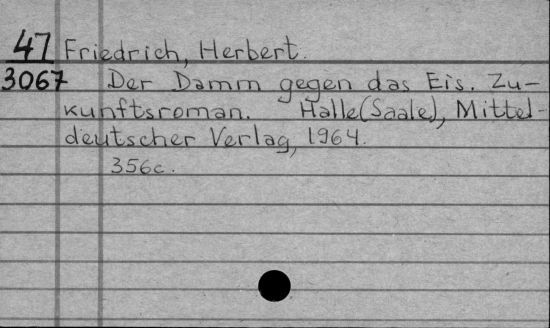 47 Friedrich, Herbert.
3067 Der Damm gegen das Eis. Zu-
kunftsroman. Halle(Saale), Mittel-
deutscher Verlag, 1964.
356c.